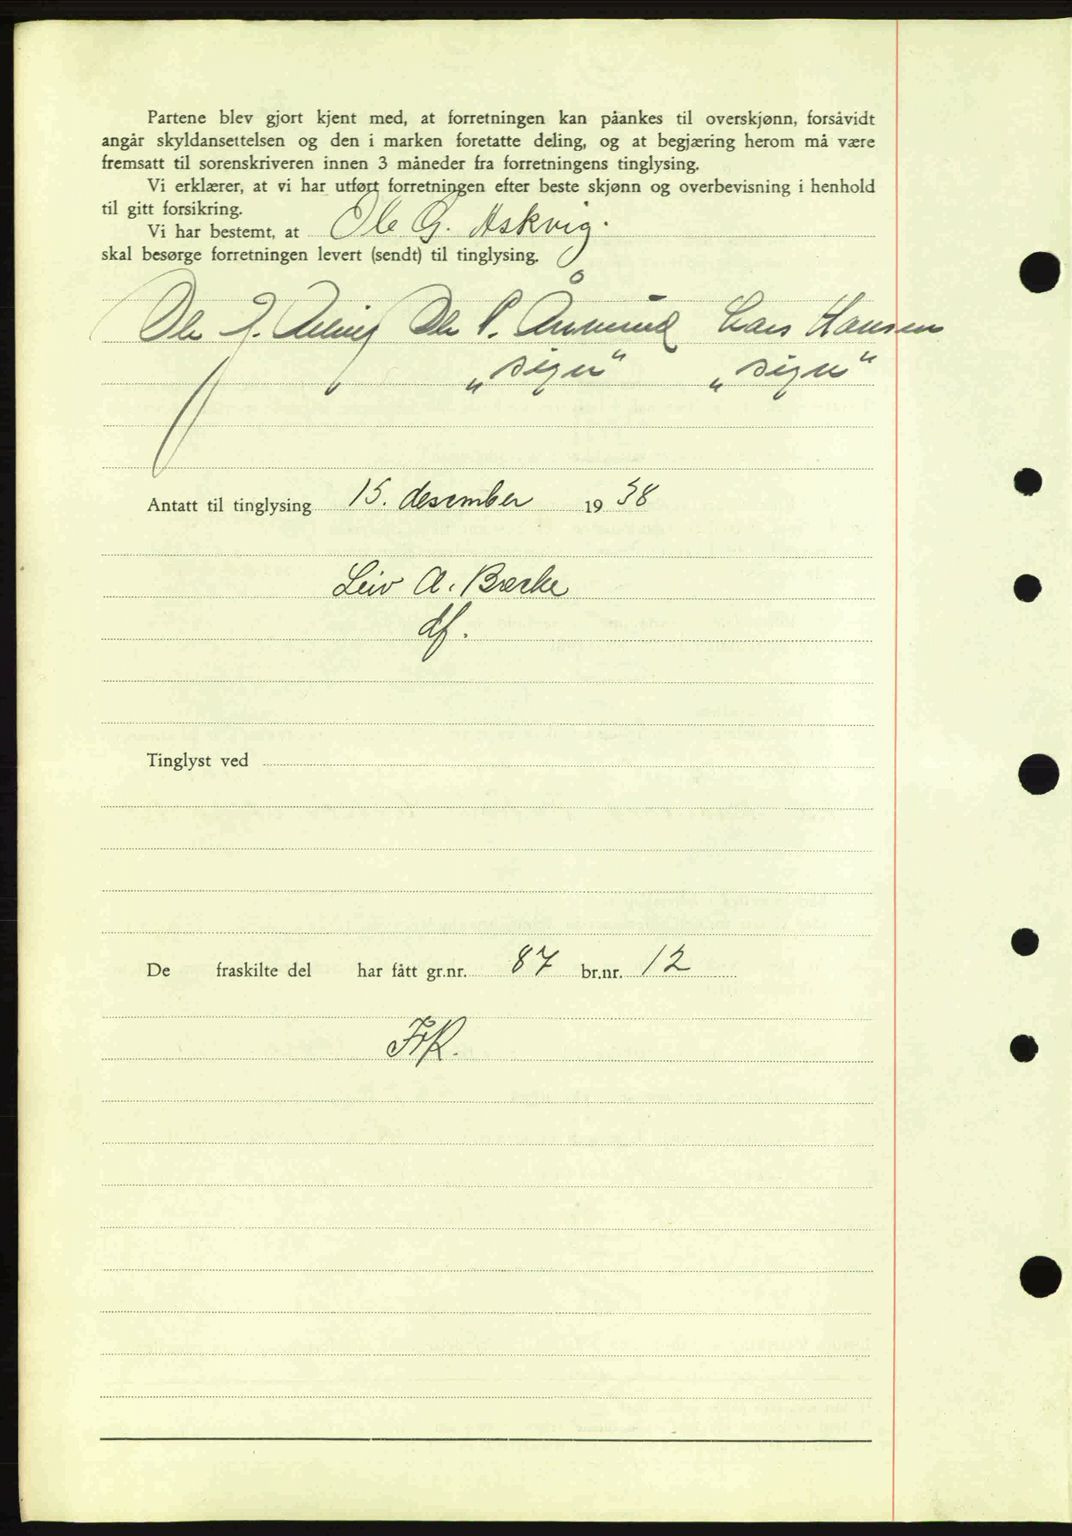 Partene blev gjort kjent med, at forretningen kan påankes til overskjønn, forsåvidt
angår skyldansettelsen og den i marken foretatte deling, og at begjæring herom må være
fremsatt til sorenskriveren innen 3 måneder fra forretningens tinglysing.
Vi erklærer, at vi har utført forretningen efter beste skjønn og overbevisning i henhold
til gitt forsikring.
Vi har bestemt, at Ole G. Askvig.
skal besørge forretningen levert (sendt) til tinglysing.
Ole G. Ole P. Åmund Lars Hansen
„sign“ „sign“
Antatt til tinglysing 15. desember 1938
Leiv A. Bæcke
df.
Tinglyst ved
De fraskilte del har fått gr.nr. 87 br.nr. 12
FrR.